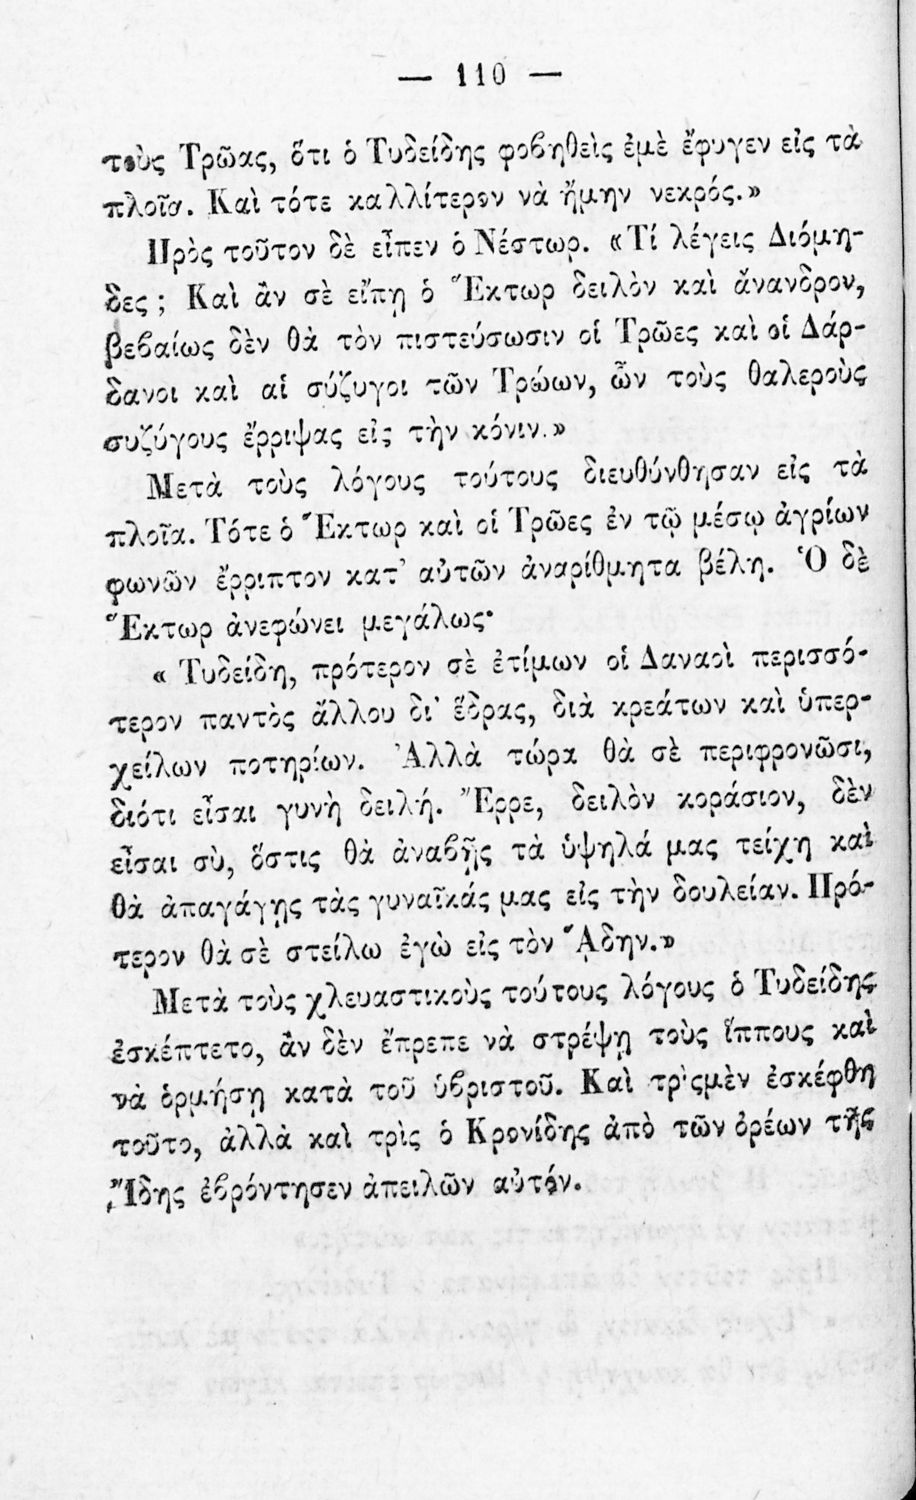 — 110 —
τοὺς Τρῶας, ὅτι ὁ Τυδείδης φοβηθεὶς ἐμὲ ἔφυγεν εἰς τὰ
πλοῖα. Καὶ τότε καλλίτερον νὰ ἤμην νεκρός.»
Πρὸς τοῦτον δὲ εἶπεν ὁ Νέστωρ. «Τί λέγεις Διόμη-
δες ; Καὶ ἂν σὲ εἴπῃ ὁ Ἕκτωρ δειλὸν καὶ ἄνανδρον,
βεβαίως δὲν θὰ τὸν πιστεύσωσιν οἱ Τρῶες καὶ οἱ Δάρ-
δανοι καὶ αἱ σύζυγοι τῶν Τρώων, ὧν τοὺς θαλεροὺς
συζύγους ἔρριψας εἰς τὴν κόνιν.»
Μετὰ τοὺς λόγους τούτους διευθύνθησαν εἰς τὰ
πλοῖα. Τότε ὁ Ἕκτωρ καὶ οἱ Τρῶες ἐν τῷ μέσῳ ἀγρίων
φωνῶν ἔρριπτον κατ' αὐτῶν ἀναρίθμητα βέλη. Ὁ δὲ
Ἕκτωρ ἀνεφώνει μεγάλως·
« Τυδείδη, πρότερον σὲ ἐτίμων οἱ Δαναοὶ περισσό-
τερον παντὸς ἄλλου δι' ἕδρας, διὰ κρεάτων καὶ ὑπερ-
χείλων ποτηρίων. Ἀλλὰ τώρα θὰ σὲ περιφρονῶσι,
διότι εἶσαι γυνὴ δειλή. Ἔρρε, δειλὸν κοράσιον, δὲν
εἶσαι σὺ, ὅστις θὰ ἀναβῇς τὰ ὑψηλά μας τείχη καὶ
θὰ ἀπαγάγῃς τὰς γυναῖκάς μας εἰς τὴν δουλείαν. Πρό-
τερον θὰ σὲ στείλω ἐγὼ εἰς τὸν ᾍδην.»
Μετὰ τοὺς χλευαστικοὺς τούτους λόγους ὁ Τυδείδης
ἐσκέπτετο, ἂν δὲν ἔπρεπε νὰ στρέψῃ τοὺς ἵππους καὶ
νὰ ὁρμήσῃ κατὰ τοῦ ὑβριστοῦ. Καὶ τρὶςμὲν ἐσκέφθη
τοῦτο, ἀλλὰ καὶ τρὶς ὁ Κρονίδης ἀπὸ τῶν ὀρέων τῆς
Ἴδης ἐβρόντησεν ἀπειλῶν αὐτόν.